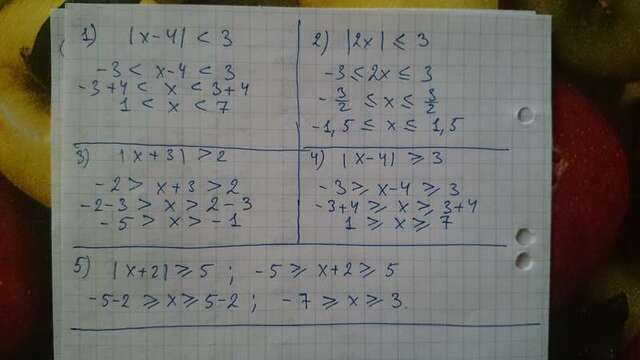 1) |x-4| < 3
-3 < x-4 < 3
-3+4 < x < 3+4
1 < x < 7
2) |2x| ≤ 3
-3 ≤ 2x ≤ 3
-3/2 ≤ x ≤ 3/2
-1,5 ≤ x ≤ 1,5
3) |x+3| > 2
-2 > x+3 > 2
-2-3 > x > 2-3
-5 > x > -1
4) |x-4| ≥ 3
-3 ≥ x-4 ≥ 3
-3+4 ≥ x ≥ 3+4
1 ≥ x ≥ 7
5) |x+2| ≥ 5 ; -5 ≥ x+2 ≥ 5
-5-2 ≥ x ≥ 5-2 ; -7 ≥ x ≥ 3.